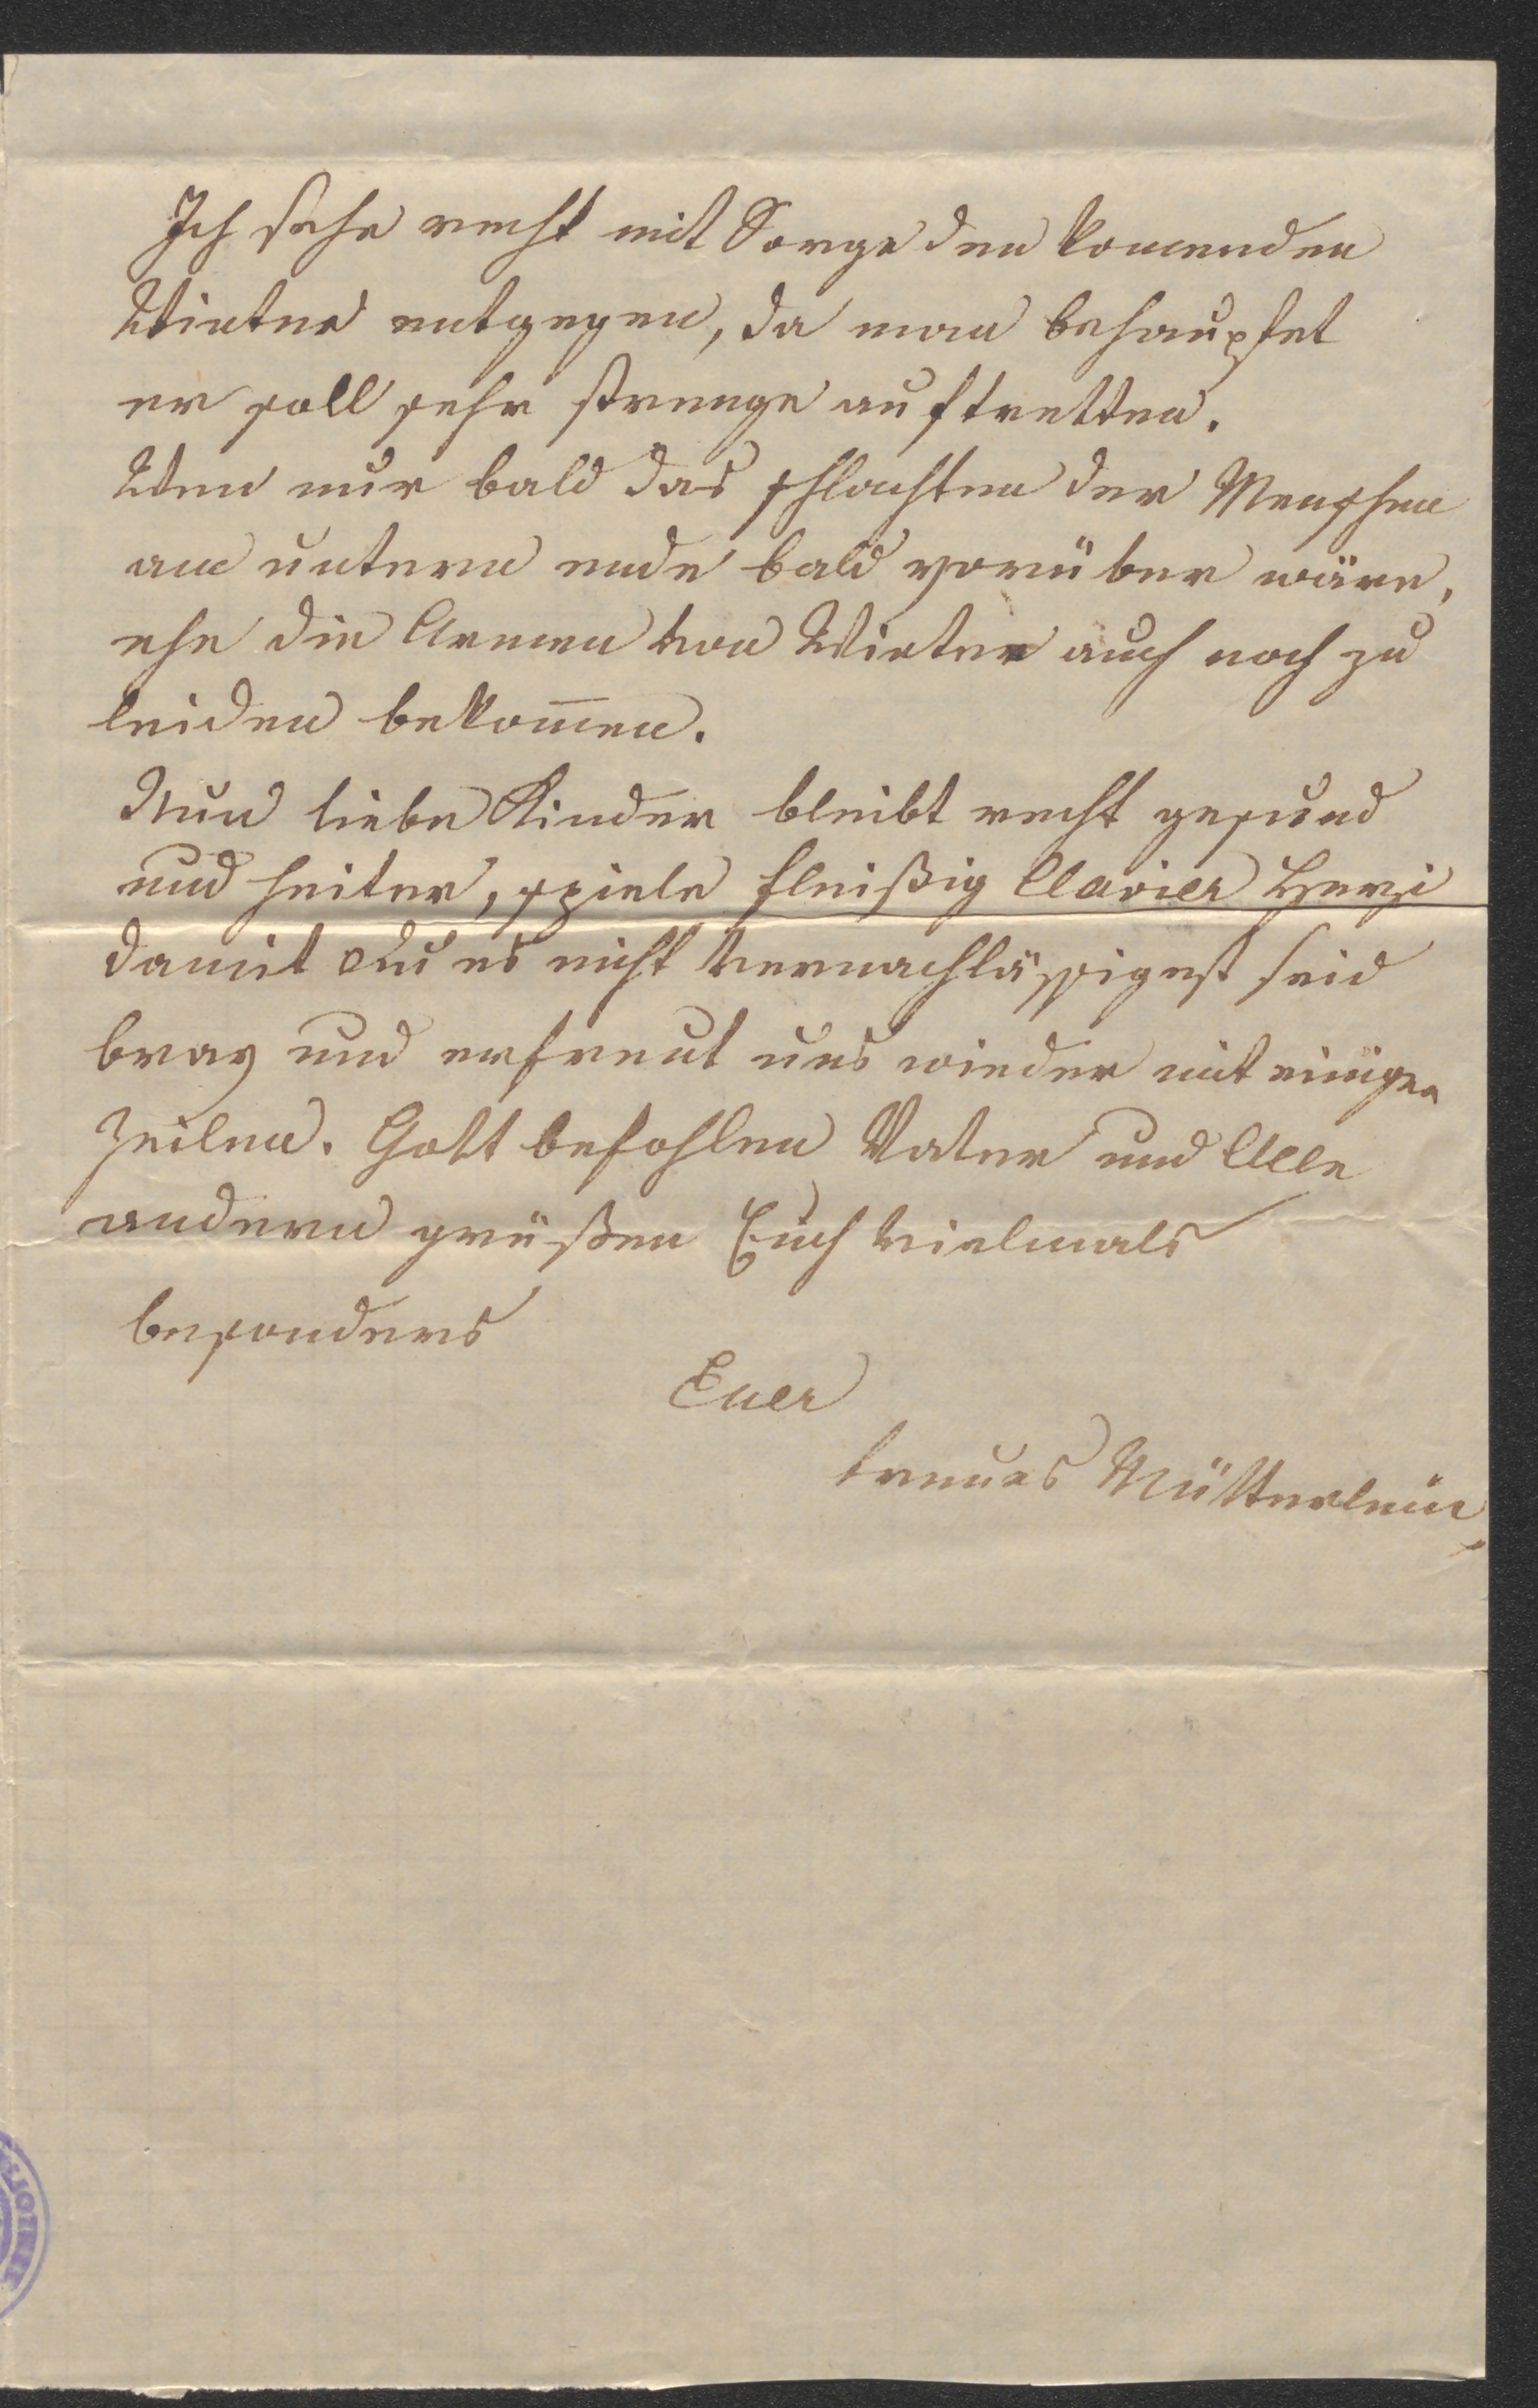 Ich sehe recht mit Sorge den komenden
Winter entgegen, da man behauptet
er soll sehr strenge auftretten.
Wen nur bald das schlachten der Menschen
am untern ende bald vorüber wäre,
ehe die Armen von Winter auch noch zu
leiden bekom̅en.
Nun liebe Kinder bleibt recht gesund
und heiter, spiele fleißig Clavier Herzi
damit Du es nicht vernachlässigest seid
brav und erfreut uns wieder mit einigen
Zeilen. Gott befohlen Vater und Alle
andern grüßen Euch vielmals
besonders
Euer
treues Mütterlein